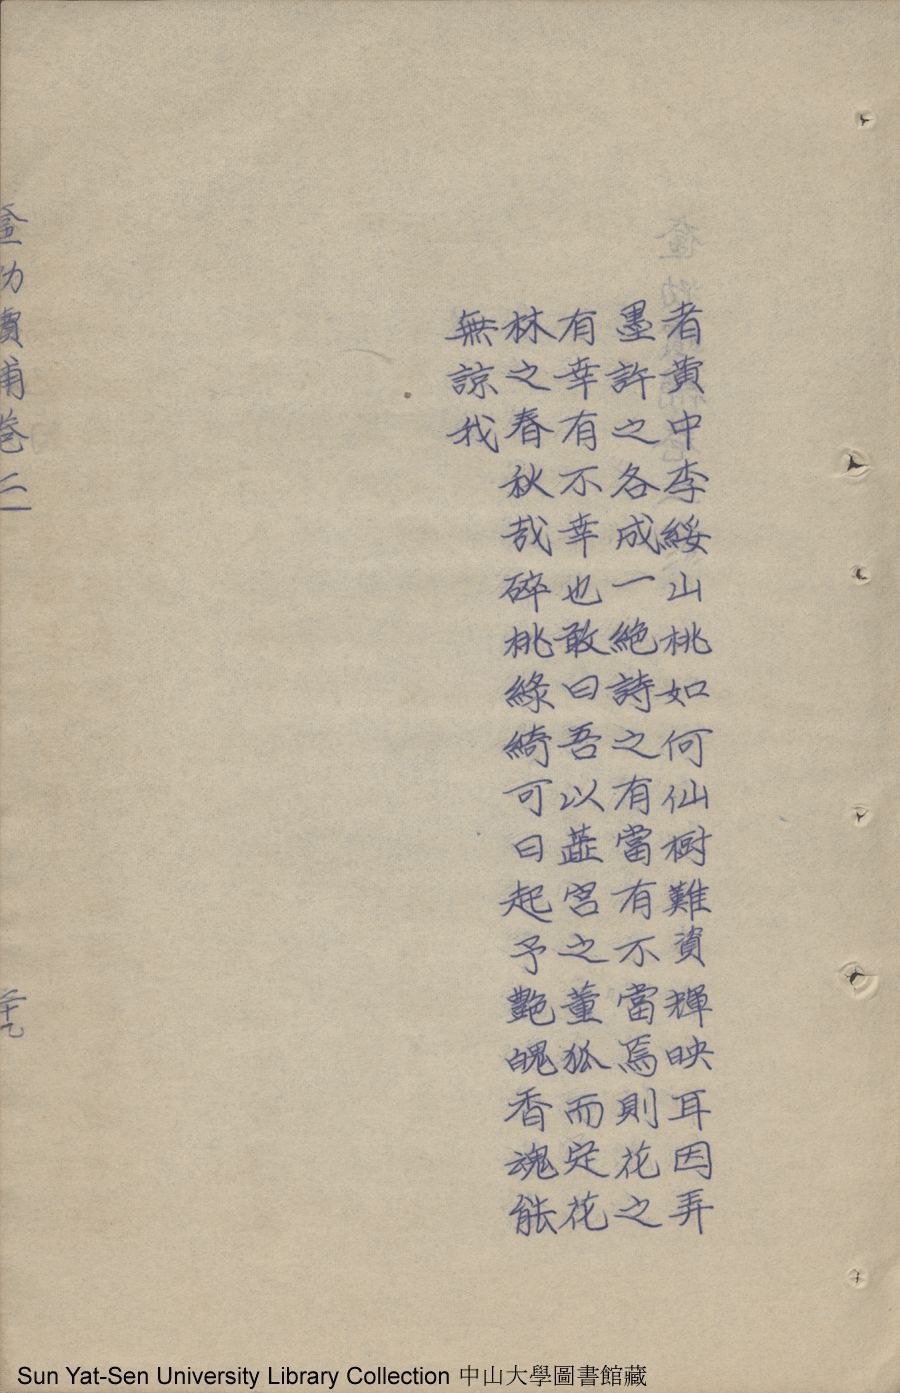 者黄中李綏山桃如何仙樹難資輝映耳因弄
墨許之各成一絶詩之有當有不當焉則花之
有幸有不幸也敢曰吾以蕋宮之董狐而定花
林之春秋哉碎桃綠綺可曰起予艷魄香魂能
無諒我
卷二
Sun Yat-Sen University Library Collection 中山大學圖書館藏